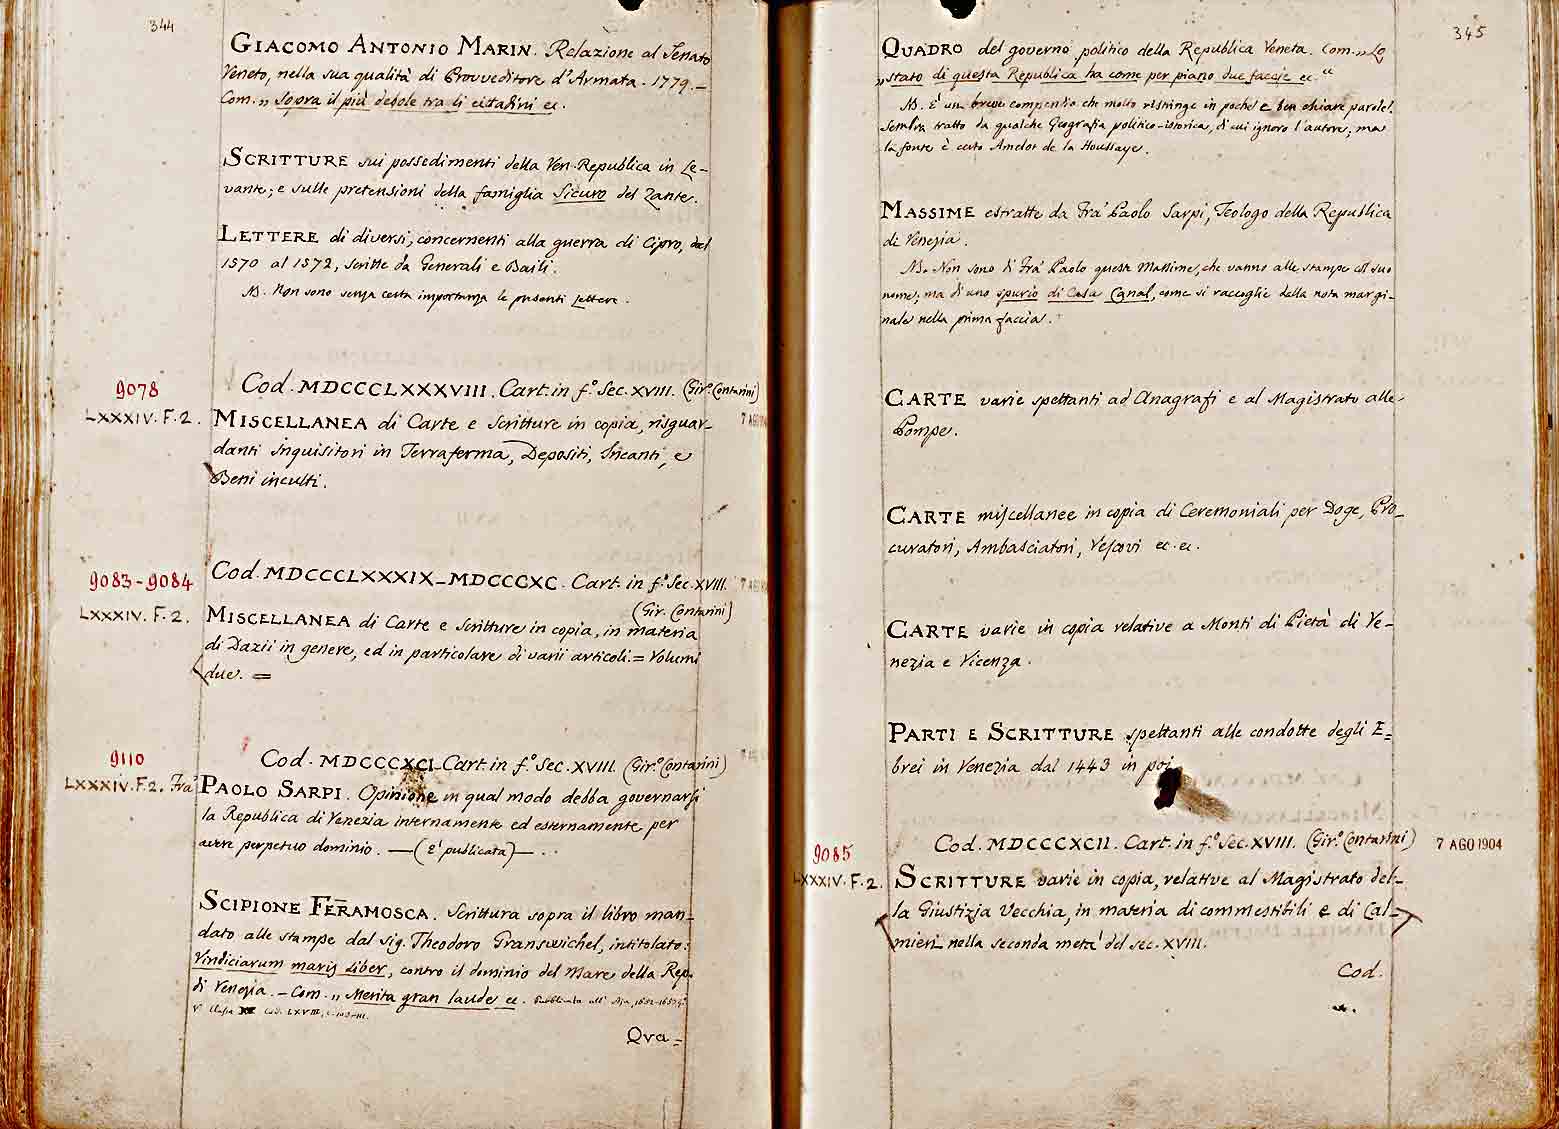 344
GIACOMO ANTONIO MARIN. Relazione al Senato
Veneto, nella sua qualità di Provveditore d'Armata. 1779.—
Com. „ sopra il più debole tra li cittadini ec.
SCRITTURE sui possedimenti della Ven. Republica in Le-
vante; e sulle pretensioni della famiglia Sicuro del Zante.
LETTERE di diversi, concernenti alla guerra di Cipro, dal
1570 al 1572, scritte da Generali e Baili.
NB. Non sono senza certa importanza le presenti Lettere.
9078
Cod. MDCCCLXXXVIII. Cart. in f.º Sec. XVIII. (Gir.º Contarini)
LXXXIV. F. 2.
MISCELLANEA di Carte e Scritture in copia, risguar-
7 AGO
danti Inquisitori in Terraferma, Depositi, Incanti, e
Beni inculti.
9083-9084
Cod. MDCCCLXXXIX-MDCCCXC. Cart. in f.º Sec. XVIII.
(Gir. Contarini)
LXXXIV. F. 2.
MISCELLANEA di Carte e Scritture in copia, in materia
di Dazii in genere, ed in particolare di varii articoli. = Volumi
due. =
9110
Cod. MDCCCXCI Cart. in f.º Sec. XVIII. (Gir.º Contarini)
LXXXIV. F. 2.
Fra' PAOLO SARPI. Opinione in qual modo debba governarsi
la Republica di Venezia internamente ed esternamente per
avere perpetuo dominio. —(E' publicata)—
SCIPIONE FERAMOSCA. Scrittura sopra il libro man-
dato alle stampe dal sig. Theodoro Granswichel, intitolato:
Vindiciarum maris Liber, contro il dominio del Mare della Rep.
di Venezia. — Com. „ Merita gran laude ec.
Qua-
345
QUADRO del governo politico della Republica Veneta. Com. „ Lo
„ stato di questa Republica ha come per piano due faccie ec. “
NB. E' un breve compendio che molto ristringe in poche e ben chiare parole.
Sembra tratto da qualche Geografia politico-istorica, di cui ignoro l'autore; ma
la fonte è certo Amelot de la Houssaye.
MASSIME estratte da Fra' Paolo Sarpi, Teologo della Republica
di Venezia.
NB. Non sono di Fra' Paolo queste Massime, che vanno alle stampe col suo
nome; ma di uno spurio di Casa Canal, come si raccoglie della nota margi-
nale nella prima faccia.
CARTE varie spettanti ad Anagrafi e al Magistrato alle
Pompe.
CARTE miscellanee in copia di Ceremoniali per Doge, Pro-
curatori, Ambasciatori, Vescovi ec. ec.
CARTE varie in copia relative a Monti di Pietà di Ve-
nezia e Vicenza.
PARTI E SCRITTURE spettanti alle condotte degli E=
brei in Venezia dal 1443 in poi
9085
Cod. MDCCCXCII. Cart. in f.º Sec. XVIII. (Gir.º Contarini)
7 AGO 1904
LXXXIV. F. 2.
SCRITTURE varie in copia, relative al Magistrato del-
la Giustizia Vecchia, in materia di commestibili e di Cal-
mieri nella seconda metà del sec. XVIII.
Cod.